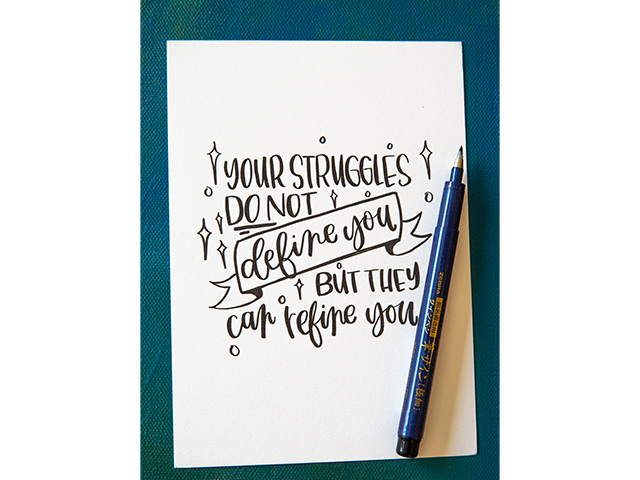 YOUR STRUGGLES
DO NOT
define you
BUT THEY
can refine you
ZEBRA